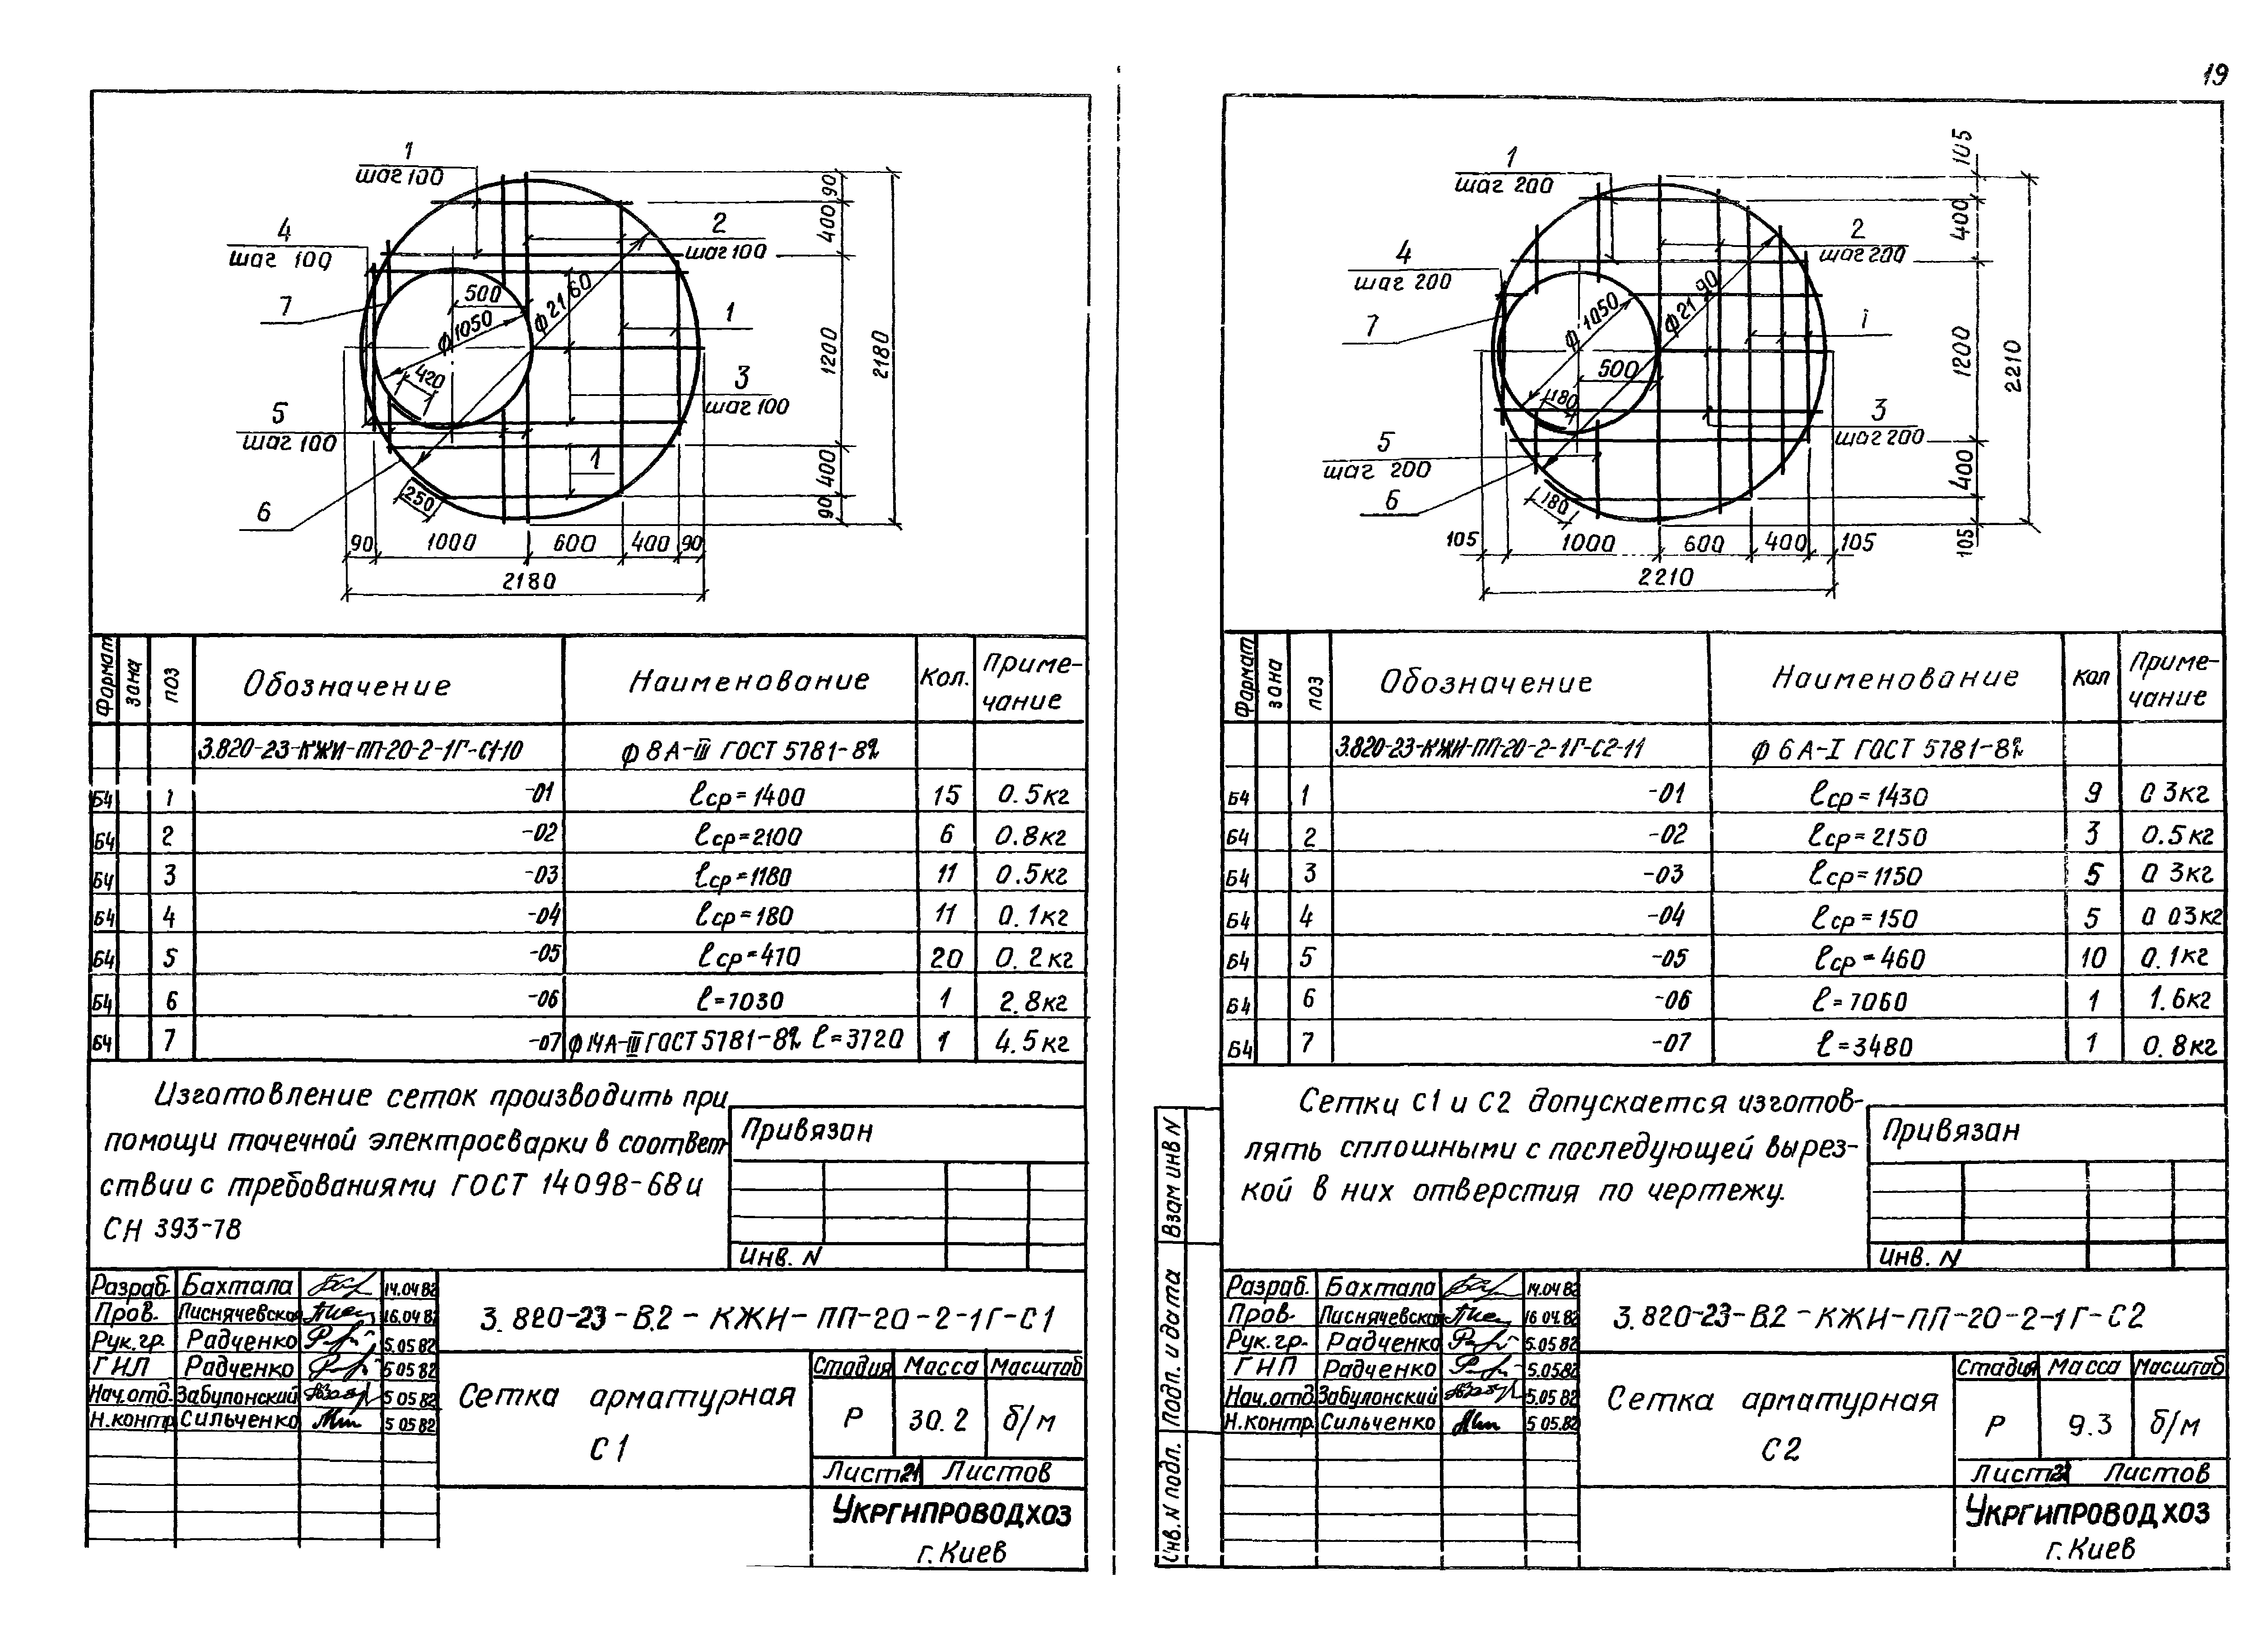 19
1
шаг 100
4
шаг 100
7
5
шаг 100
6
2
шаг 100
1
3
шаг 100
1
500
ф1050
ф2160
420
250
90
400
1200
400
90
2180
90 1000 600 400 90
2180
Формат зона поз Обозначение Наименование Кол. Приме-
чание
3.820-23-КЖИ-ПП-20-2-1Г-С1-10 ф 8 А-III ГОСТ 5781-82
Б4 1 -01 ℓср=1400 15 0.5кг
Б4 2 -02 ℓср=2100 6 0.8кг
Б4 3 -03 ℓср=1180 11 0.5кг
Б4 4 -04 ℓср=180 11 0.1кг
Б4 5 -05 ℓср=470 20 0.2кг
Б4 6 -06 ℓ=7030 1 2.8кг
Б4 7 -07 ф14А-III ГОСТ 5781-82 ℓ=3720 1 4.5кг
Изготовление сеток производить при
помощи точечной электросварки в соответ-
ствии с требованиями ГОСТ 14098-68 и
СН 393-78
Привязан
Инв. N
Разраб. Бахтала 14.04.82
Пров. Лиснячевская 16.04.82
Рук.гр. Радченко 5.05.82
ГИП Радченко 5.05.82
Нач.отд. Забулонский 5.05.82
Н.контр. Сильченко 5.05.82
3.820-23-В.2-КЖИ-ПП-20-2-1Г-С1
Сетка арматурная
С1
Стадия Масса Масштаб
Р 30.2 б/м
Лист 21 Листов
Укргипроводхоз
г. Киев
1
шаг 200
4
шаг 200
7
5
шаг 200
6
2
шаг 200
1
3
шаг 200
ф1050
ф2190
500
180
180
105
400
1200
400
105
2210
105 1000 600 400 105
2210
Формат зона поз Обозначение Наименование Кол Приме-
чание
3.820-23-КЖИ-ПП-20-2-1Г-С2-11 ф 6 А-I ГОСТ 5781-82
Б4 1 -01 ℓср=1430 9 0.3кг
Б4 2 -02 ℓср=2150 3 0.5кг
Б4 3 -03 ℓср=1150 5 0.3кг
Б4 4 -04 ℓср=150 5 0.03кг
Б4 5 -05 ℓср=460 10 0.1кг
Б4 6 -06 ℓ=7060 1 1.6кг
Б4 7 -07 ℓ=3480 1 0.8кг
Сетки С1 и С2 допускается изготов-
лять сплошными с последующей вырез-
кой в них отверстия по чертежу.
Привязан
Инв. N
Взам инв N
Подп. и дата
Инв. N подл.
Разраб. Бахтала 14.04.82
Пров. Лиснячевская 16.04.82
Рук.гр. Радченко 5.05.82
ГИП Радченко 5.05.82
Нач.отд. Забулонский 5.05.82
Н.контр. Сильченко 5.05.82
3.820-23-В.2-КЖИ-ПП-20-2-1Г-С2
Сетка арматурная
С2
Стадия Масса Масштаб
Р 9.3 б/м
Лист 22 Листов
Укргипроводхоз
г. Киев